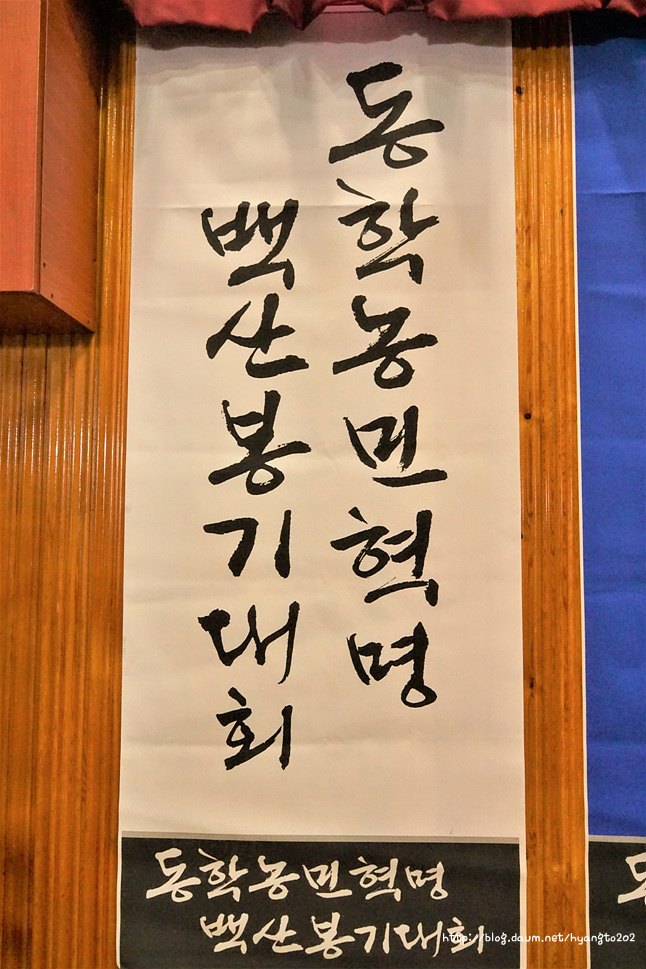 동학농민혁명
백산봉기대회
동학농민혁명
백산봉기대회
동
http://blog.daum.net/hyangto202